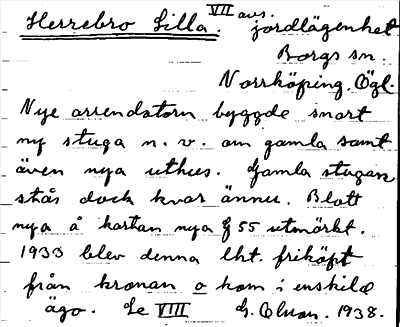 Herrebro Lilla. VII avs. jordlägenhet
Borgs sn.
Norrköping. Ögl.
Nye arrendatorn byggde snart
ny stuga n. v. om gamla samt
även nya uthus. Gamla stugan
står dock kvar ännu. Blott
nya å kartan nya § 55 utmärkt.
1933 blev denna lht. friköpt
från kronan o kom i enskild
ägo. Se VIII G. Olsson. 1938.